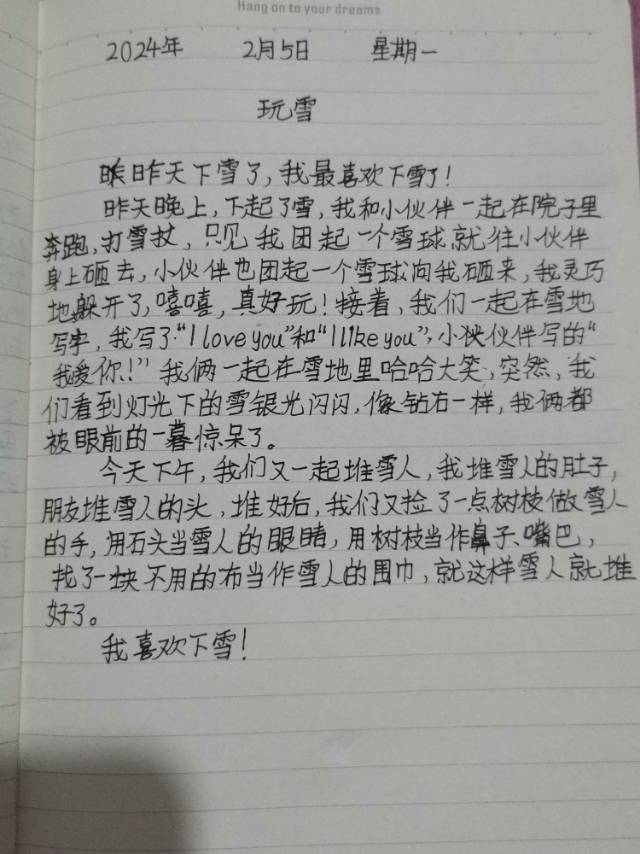 Hang on to your dreams
2024年 2月5日 星期一
玩雪
昨天下雪了,我最喜欢下雪了!
昨天晚上,下起了雪,我和小伙伴一起在院子里
奔跑,打雪仗,只见我团起一个雪球就往小伙伴
身上砸去,小伙伴也团起一个雪球向我砸来,我灵巧
地躲开了,嘻嘻,真好玩!接着,我们一起在雪地
写字,我写了“I love you”和“I like you”,小伙伴写的“
我爱你!”我俩一起在雪地里哈哈大笑,突然,我
们看到灯光下的雪银光闪闪,像钻石一样,我俩都
被眼前的一幕惊呆了。
今天下午,我们又一起堆雪人,我堆雪人的肚子,
朋友堆雪人的头,堆好后,我们又捡了一点树枝做雪人
的手,用石头当雪人的眼睛,用树枝当作鼻子、嘴巴,
找了一块不用的布当作雪人的围巾,就这样雪人就堆
好了。
我喜欢下雪!